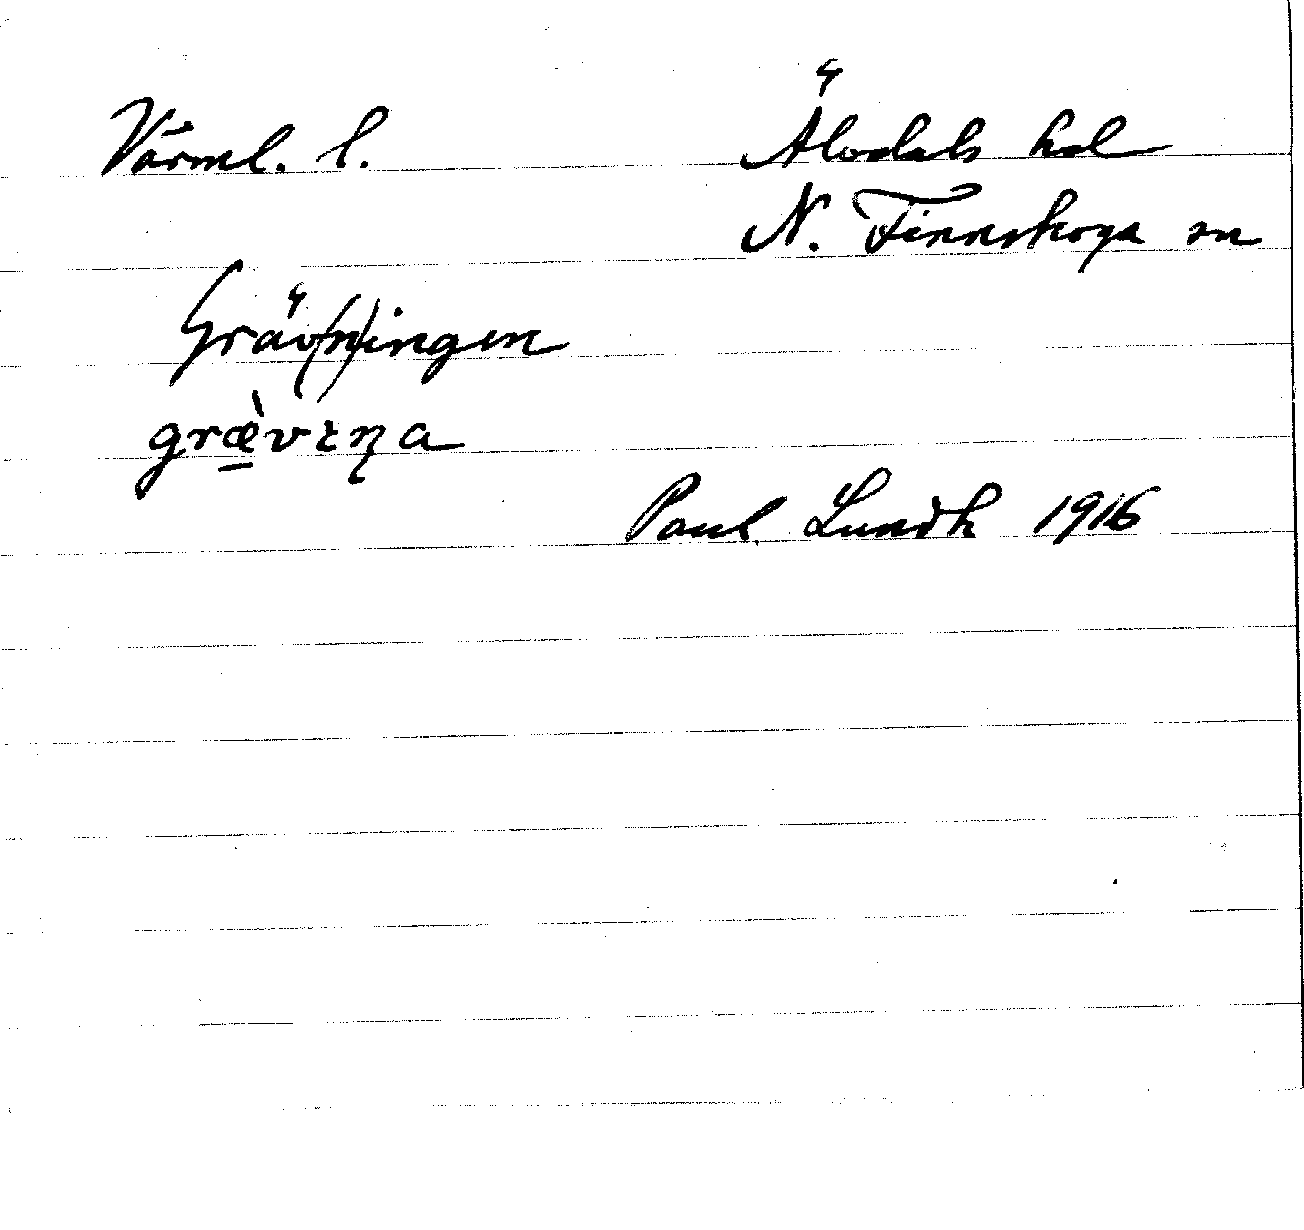 Värml. l.
Älvdals hd
N. Finnskoga sn
Gräv(n)ingen
græ̠̀vıŋa
Paul Lundh 1916